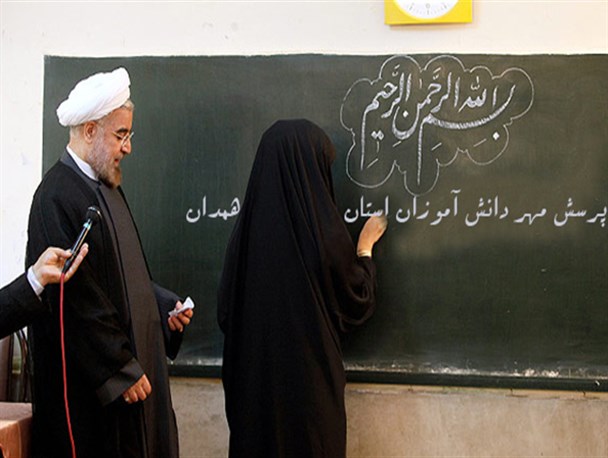 بسم الله الرحمن الرحیم
پرسش مهر دانش آموزان استان همدان